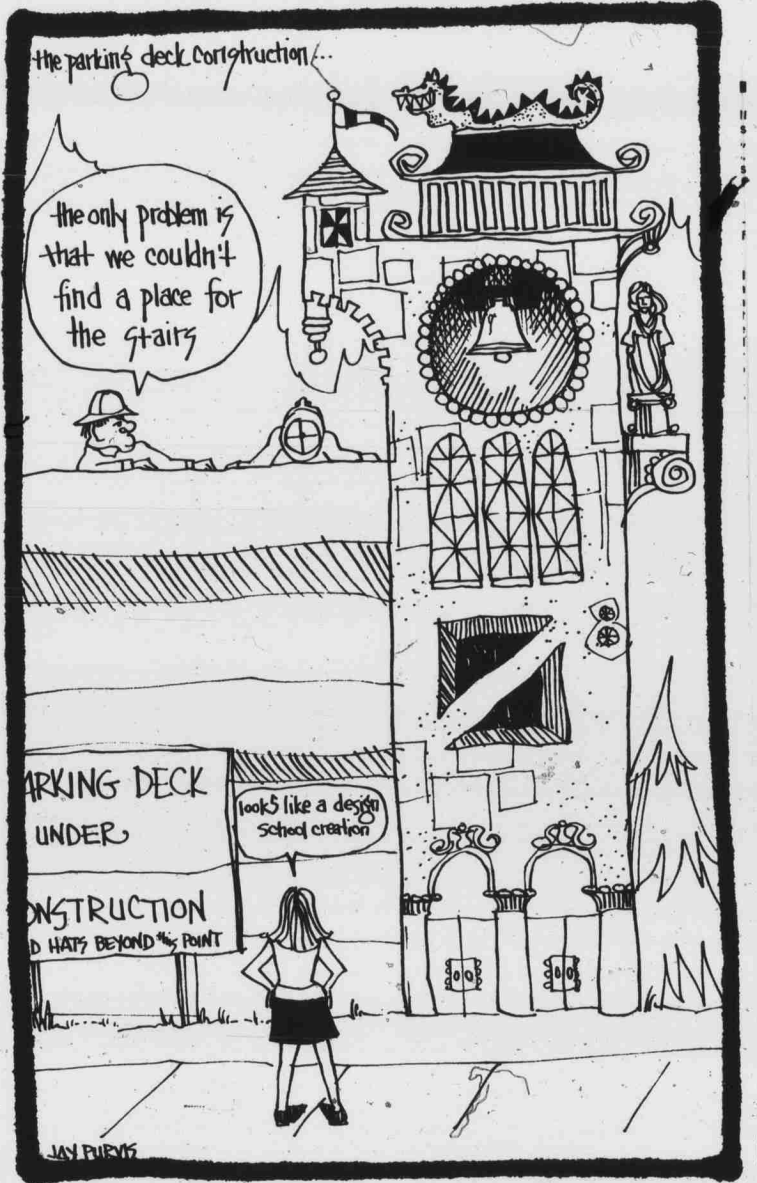 the parking deck construction...
the only problem is
that we couldn't
find a place for
the stairs
ARKING DECK
UNDER
ONSTRUCTION
D HATS BEYOND this POINT
looks like a design
school creation
JAY PURVIS